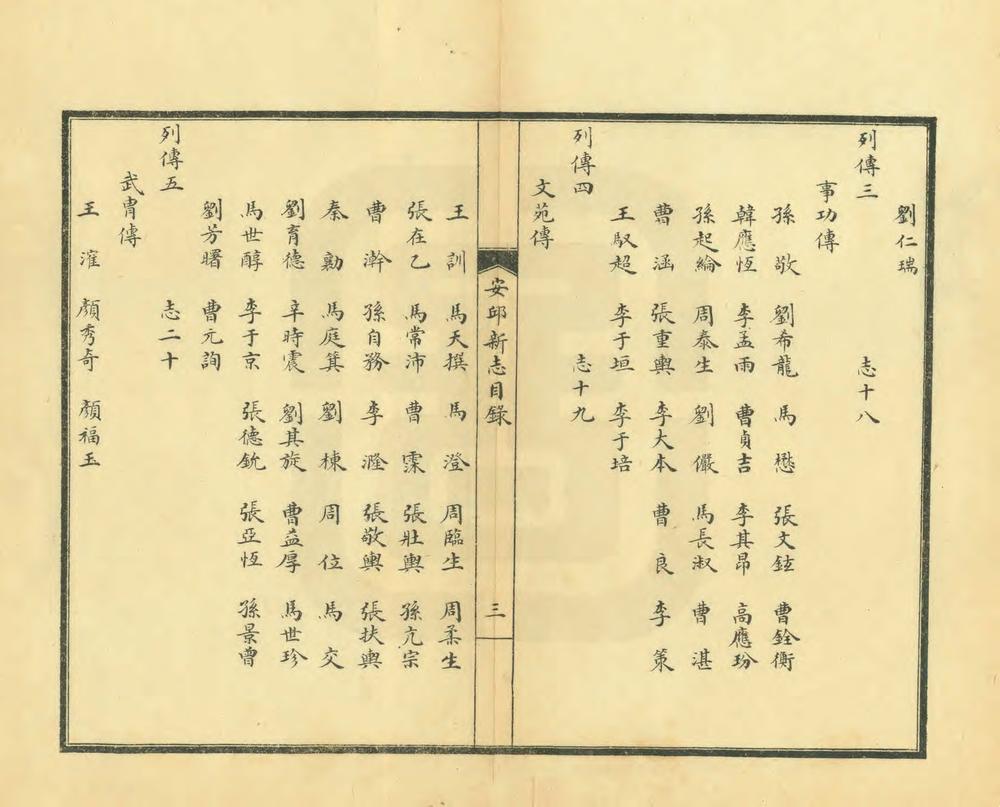 劉仁瑞
列傳三 志十八
事功傳
孫敬 劉希龍 馬懋 張文鉉 曹銓衡
韓應恆 李孟雨 曹貞吉 李其昂 高應玢
孫起綸 周泰生 劉儼 馬長淑 曹湛
曹涵 張重輿 李大本 曹良 李策
王馭超 李于垣 李于培
列傳四 志十九
文苑傳
安邱新志目錄 三
王訓 馬天撰 馬澄 周臨生 周柔生
張在乙 馬常沛 曹霂 張壯輿 孫亢宗
曹澣 孫自務 李漋 張敬輿 張扶輿
秦勷 馬庭箕 劉棟 周位 馬交
劉育德 辛時震 劉其旋 曹益厚 馬世珍
馬世醇 李于京 張德鈗 張亞恆 孫景曾
劉芳曙 曹元詢
列傳五 志二十
武胄傳
王漼 顏秀奇 顏福玉